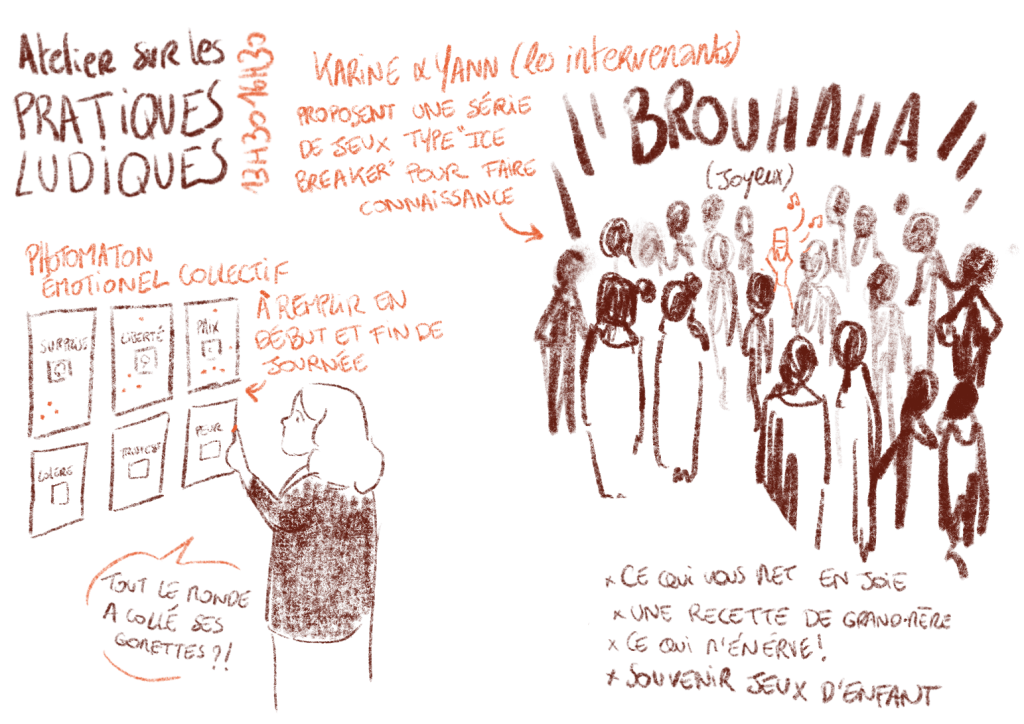 Atelier sur les
PRATIQUES
LUDIQUES
13H30 16H30
KARINE & YANN (les intervenants)
PROPOSENT UNE SÉRIE
DE JEUX TYPE "ICE
BREAKER" POUR FAIRE
CONNAISSANCE
BROUHAHA
(Joyeux)
PHOTOMATON
ÉMOTIONEL COLLECTIF
À REMPLIR EN
DÉBUT ET FIN DE
JOURNÉE
SURPRISE
LIBERTÉ
PAIX
COLÈRE
PEUR
TOUT LE MONDE
A COLLÉ SES
GOMETTES?!
x CE QUI VOUS MET EN JOIE
x UNE RECETTE DE GRAND-MÈRE
x CE QUI M'ÉNERVE!
x SOUVENIR JEUX D'ENFANT